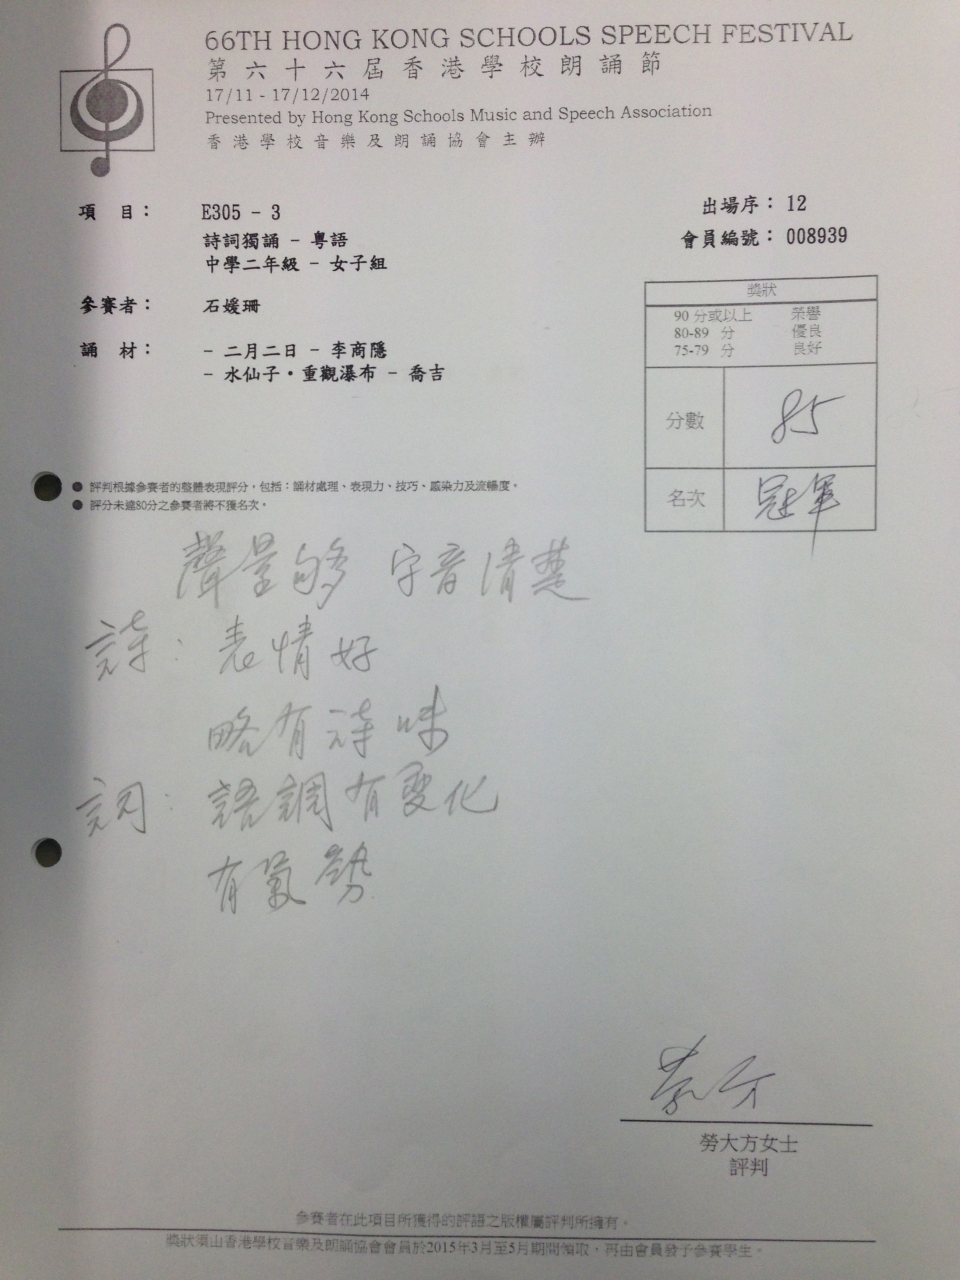 66TH HONG KONG SCHOOLS SPEECH FESTIVAL
第六十六屆香港學校朗誦節
17/11 - 17/12/2014
Presented by Hong Kong Schools Music and Speech Association
香港學校音樂及朗誦協會主辦
項 目： E305 - 3
詩詞獨誦 - 粵語
中學二年級 - 女子組
出場序： 12
會員編號： 008939
參賽者： 石媛珊
誦 材： - 二月二日 - 李商隱
- 水仙子・重觀瀑布 - 喬吉
獎狀
90 分或以上 榮譽
80-89 分 優良
75-79 分 良好
分數 85
名次 冠軍
● 評判根據參賽者的整體表現評分，包括：誦材處理、表現力、技巧、感染力及流暢度。
● 評分未達80分之參賽者將不獲名次。
聲量夠 字音清楚
詩：表情好
略有詩味
詞：語調有變化
有氣勢
勞大方女士
評判
參賽者在此項目所獲得的評語之版權屬評判所擁有。
獎狀須由香港學校音樂及朗誦協會會員於2015年3月至5月期間領取，再由會員發予參賽學生。